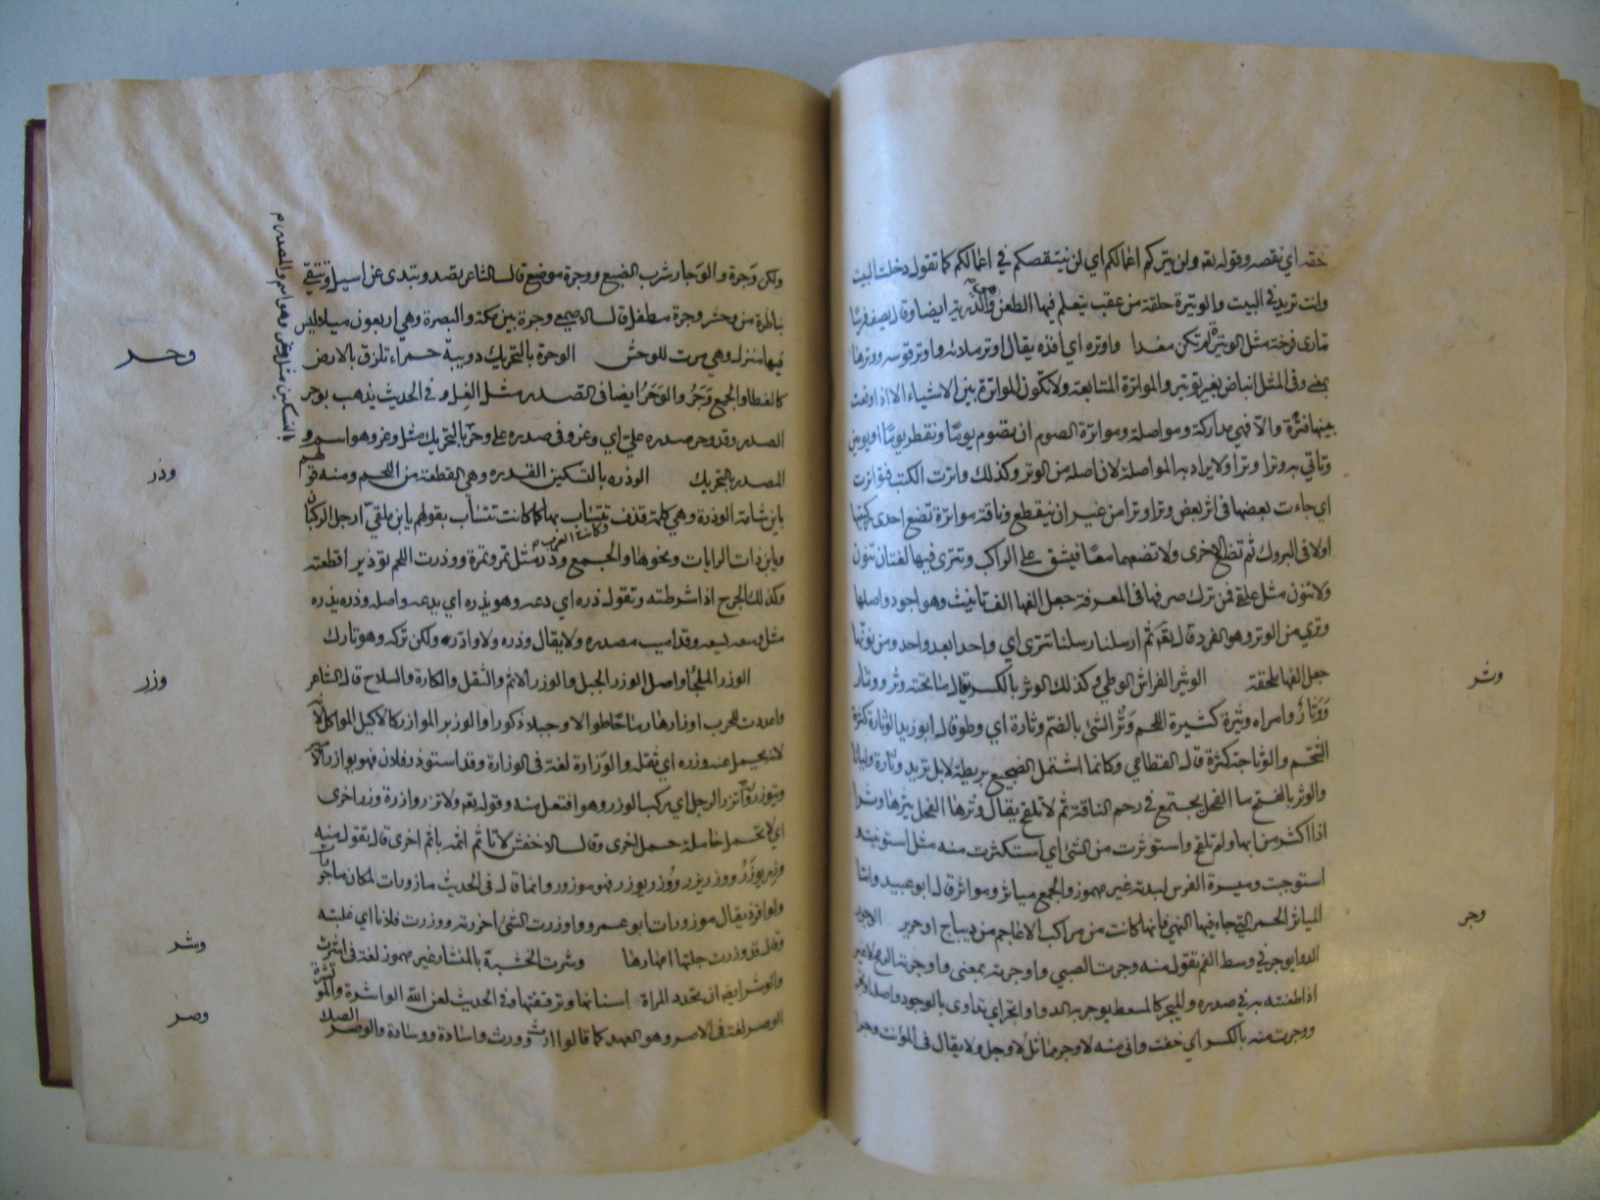 حقه اي نقصه وقوله تعه ولن يتركم اعمالكم اي لن ينتقصكم في اعمالكم كما تقول دخلت البيت
وانت تريد في البيت والوتيرة حلقة من عقب يتعلم فيها الطعن وهي الدريئة ايضا وقال يصف فرسا
تبارى قرحة مثل الوتيرة لم تكن مغدا واوتره اي افذه يقال اوتر صلاته واوتر قوسه ووترها
بمعنى وفى المثل انباض بغير توتير والمواترة المتابعة ولا تكون المواترة بين الاشياء الا اذا وقعت
بينها فترة والا فهي مداركة ومواصلة ومواترة الصوم ان تصوم يومًا وتفطر يومًا او يومين
وتاتي به وترا وترا ولا يراد به المواصلة لان اصله من الوتر وكذلك واترت الكتب فتواترت
اي جاءت بعضها فى اثر بعض وترا وترا من غير ان ينقطع وناقة مواترة تضع احدى ركبتيها
اولا فى البروك ثم تضع الاخرى ولا تضعهما معًا فيشق على الراكب وتترى فيها لغتان تنون
ولا تنون مثل علقى فمن ترك صرفها فى المعرفة جعل الفها الف تانيث وهو اجود واصلها
وترى من الوتر وهو الفرد قال تعه ثم ارسلنا رسلنا تترى اي واحدا بعد واحد ومن نونها
جعل الفها ملحقة الوثير الفراش الوطي وكذلك الوثر بالكسر يقال ما تحته وثر ووثار
وَوَثَارٌ وامراة وثيرة كثيرة اللحم وَوَثُر الشئ بالضم وثارة اي وطؤ قال ابو زيد الوثارة كثرة
الشحم والوثاجة كثرة قال القطامي وكانما اشتمل الضجيع بريطة لا بل تزيد وثارة وليانا
والوثر بالفتح ماء الفحل يجتمع في رحم الناقة ثم لا تلقح يقال وثرها الفحل يثرها وثرا
اذا اكثر من ضرابها ولم تلقح واستوثرت من الشئ اي استكثرت منه مثل استوثنت
استوجت وميثرة الفرس لبدته غير مهموز والجمع مياثر ومواثر قال ابو عبيد واما
المياثر الحمر التي جاء فيها النهي فانها كانت من مراكب الاعاجم من ديباج او حرير الوجور
الدوا يوجر في وسط الفم تقول منه وجرت الصبي واوجرته بمعنى واوجرته الرمح لا غير
اذا طعنته به في صدره والميجر كالمسعط يوجر به الدوا واتجر اي تداوى بالوجور واصله اوتجر
ووجرت منه بالكسر اي خفت وانى منه لاوجر مثل لاوجل ولا يقال فى المؤنث وجرا
وثر
وجر
ولكن وَجِرة والوَجار سرب الضبع ووجرة موضع قال الشاعر تصد وتبدى عن اسيل وتتقي
بناظرة من وحش وجرة مطفل قال الاصمعي وجرة بين مكة والبصرة وهي اربعون ميلا ليس
فيها منزل وهي مرت للوحش الوحرة بالتحريك دويبة حمراء تلزق بالارض
كالعظاء والجمع وَحَرٌ والوَحَرُ ايضا فى الصدر مثل الغل وفى الحديث يذهب بوحر
الصدر وقد وحر صدره علىّ اي وغر وفى صدره على وحر بالتحريك مثل وغر وهو اسم و
المصدر بالتحريك الوذره بالتسكين الفدره وهي القطعة من اللحم ومنه قولهم
يا ابن شامة الوذرة وهي كلمة قذف وكانت العرب تتساب بها كما كانت تتساب بقولهم يا ابن ملقي ارحل الركبان
ويا ابن ذات الرايات ونحوها والجمع وذر مثل تمر وتمرة ووذرت اللحم توذيرا قطعته
وكذلك الجرح اذا شرطته وتقول ذره اي دعه وهو يذره اي يدعه واصله وذره يذره
مثل وسعه يسعه وقد اميت مصدره ولا يقال وذره ولا واذر ولكن تركه وهو تارك
الوزر الملجأ واصل الوزر الجبل والوزر الاثم والثقل والكارة والسلاح قال الشاعر
واعددت للحرب اوزارها رماحًا طوالا وخيلا ذكورا والوزير الموازر كالاكيل المواكل
لانه يحمل عنه وزره اي ثقله والوَزارة لغة فى الوزارة وقد استوزر فلان فهو يوازر الامير
ويتوزر له واتزر الرجل اي ركب الوزر وهو افتعل منه وقوله تعه ولا تزر وازرة وزر اخرى
اي لا تحمل حاملة حمل اخرى وقال الاخفش لا تاثم اثمة باثم اخرى قال تقول منه
وزر يوزَرُ ووزر يزر ووُزر يوزر فهو موزور وانما قال فى الحديث مازورات لمكان ماجورات
ولو افرد لقال موزورات ابو عمرو واوزرت الشئ احرزته ووزرت فلانا اي غلبته
وقال قد وزرت جلتها امهارها وشرت الخشبة بالمنشار غير مهموز لغة فى اشرت
والوشر ايضا ان تحدد المراة اسنانها وترققها وفى الحديث لعن الله الواشرة والموتشرة
الوصر لغة فى الاصر وهو العهد كما قالوا ارث وورث واسادة ووسادة والوصر الصك
بالتسكين مثل وغر وهو اسم والمصدر م
وحر
وذر
وزر
وشر
وصر